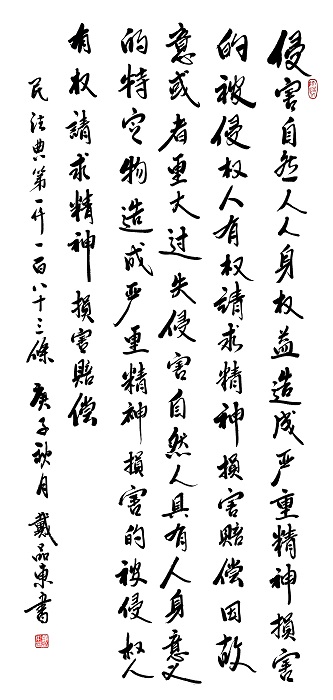 侵害自然人人身权益造成严重精神損害
的被侵权人有权請求精神損害賠偿因故
意或者重大过失侵害自然人具有人身意义
的特定物造成严重精神損害的被侵权人
有权請求精神損害賠偿
民法典第一仟一百八十三條 庚子秋月 戴品東書